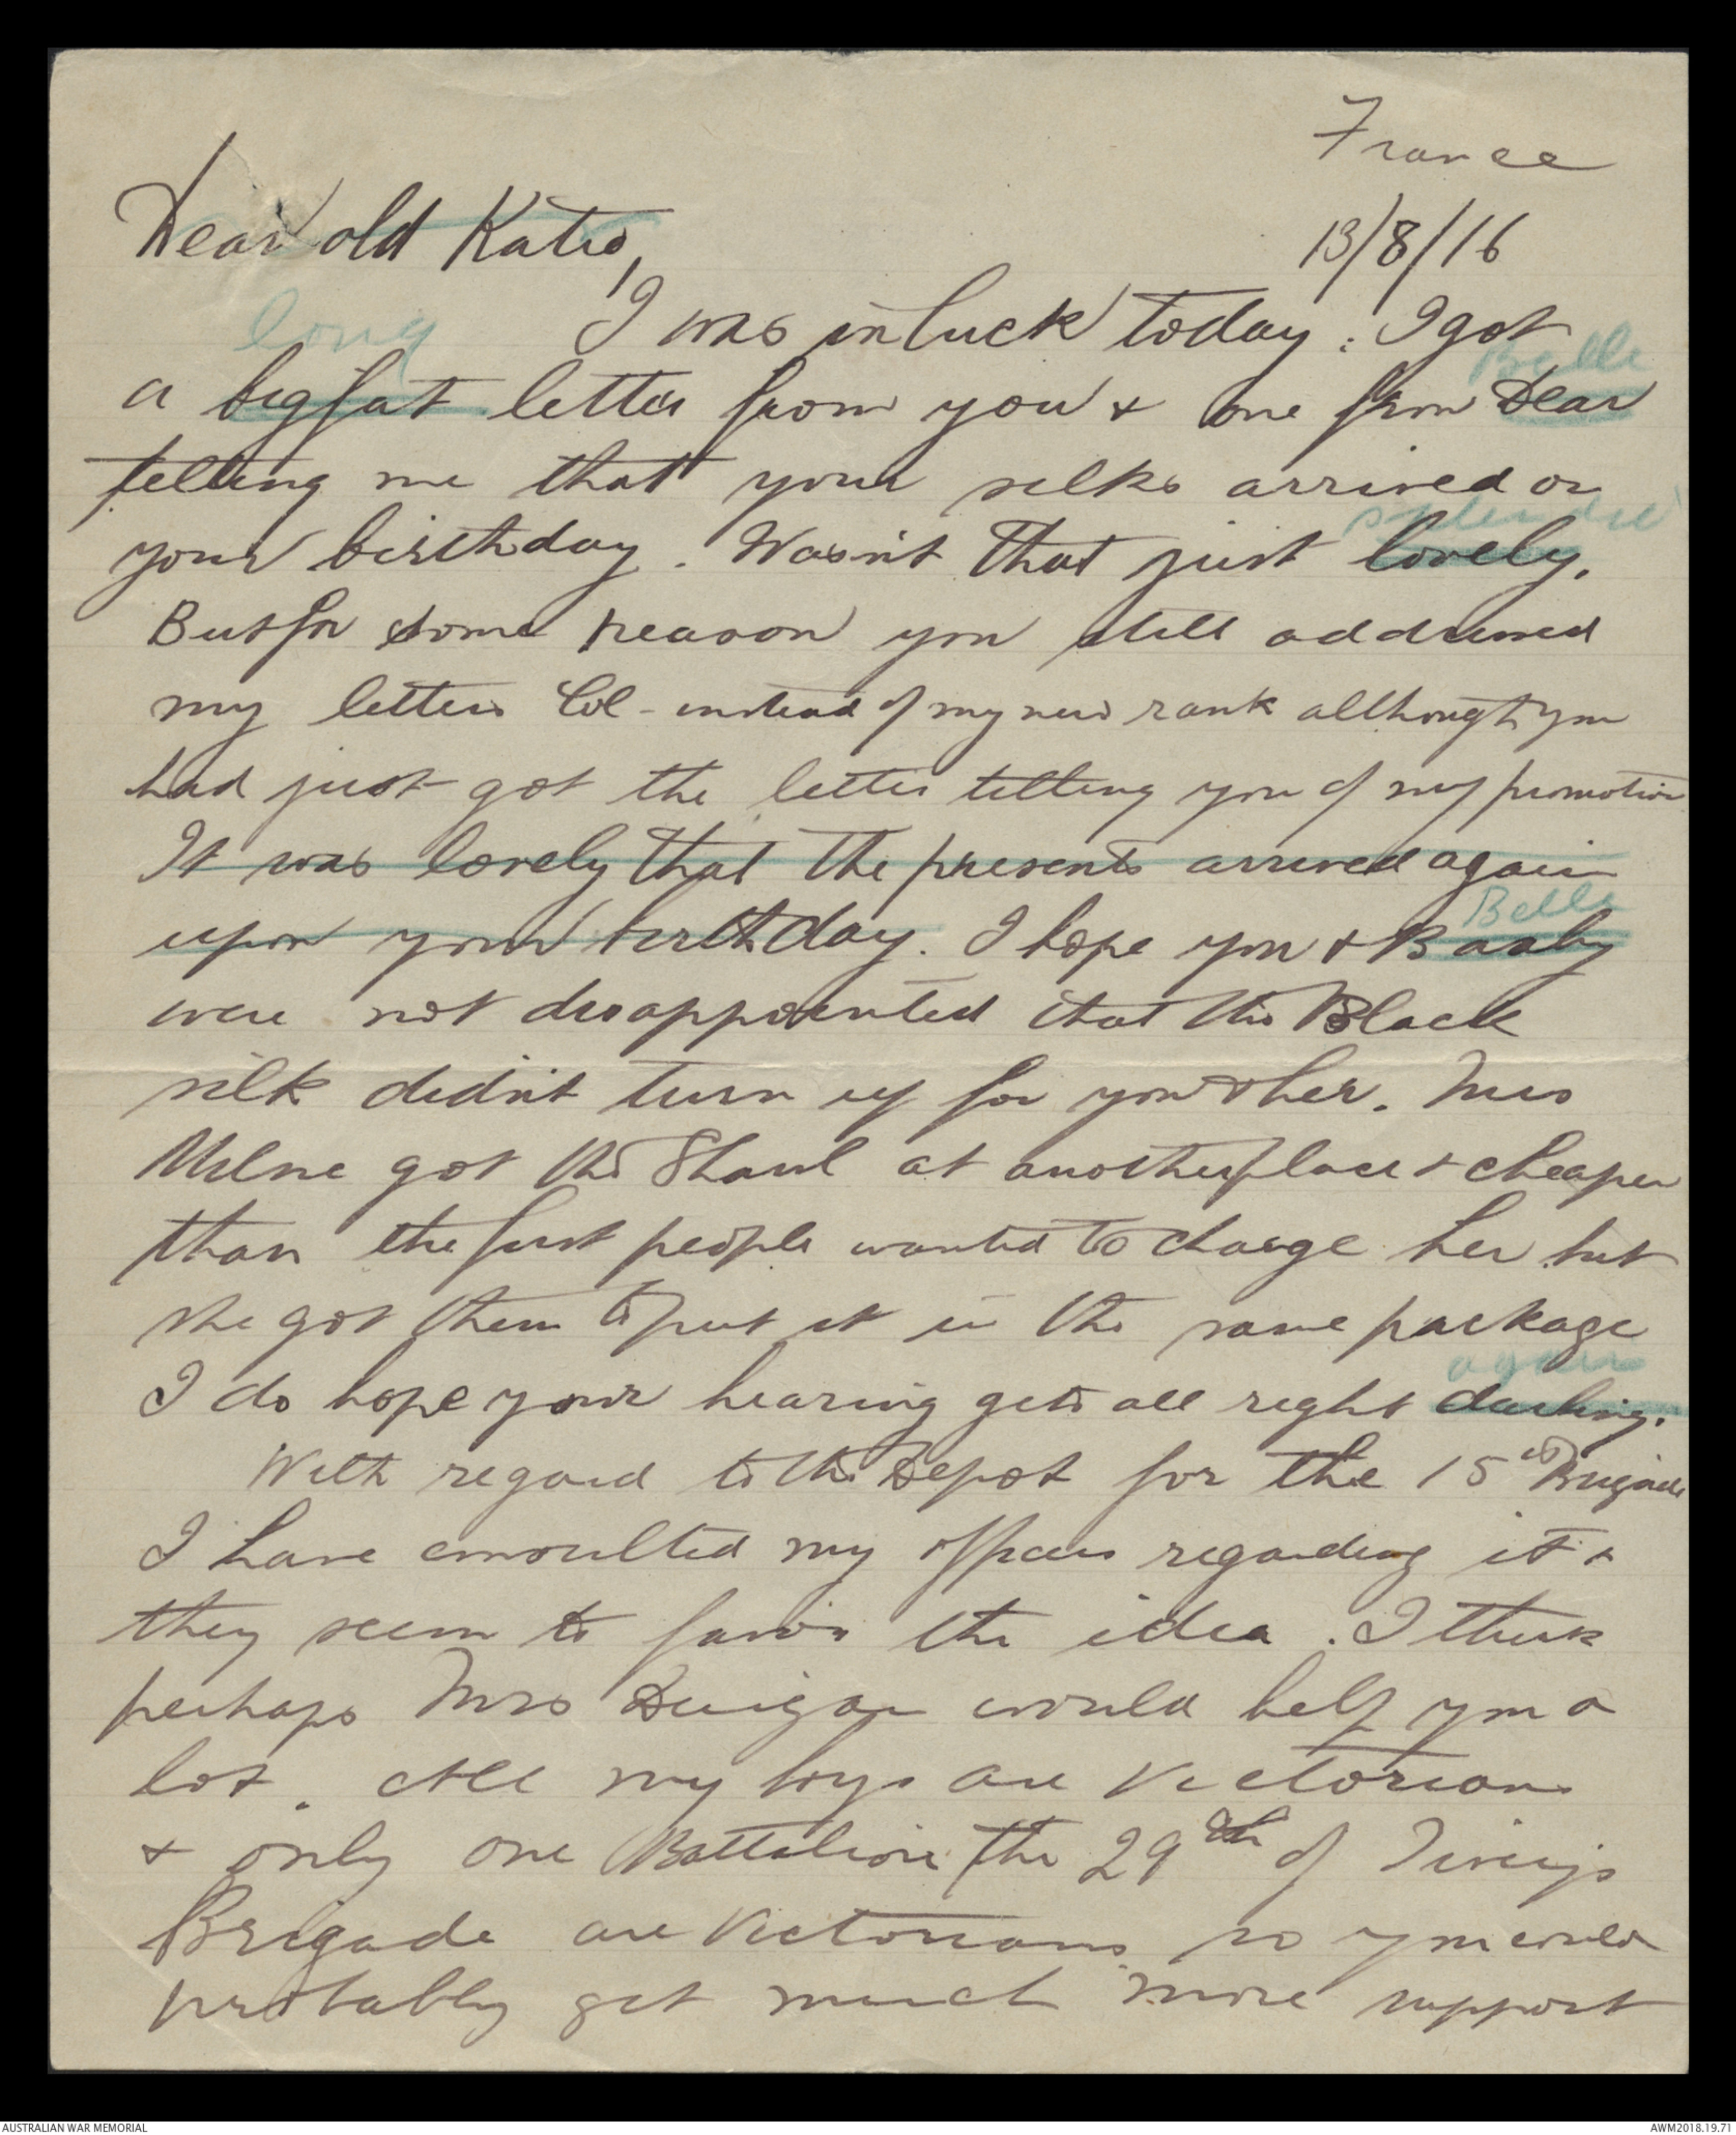 France
13/8/16
Dear old Katie,
long
I was in luck today: I got
Belle
a big fat letter from you & one from Dear
telling me that your silks arrived on
splendid
your birthday. Wasn't that just lovely.
But for some reason you still addressed
my letters Col - instead of my new rank although you
had just got the letter telling you of my promotion
It was lovely that the presents arrived again
Belle
upon your birthday. I hope you & Baaby
were not disappointed that the Black
silk didn't turn up for you & her. Mrs
Milne got the Shawl at another place & cheaper
than the first people wanted to charge her but
she got them to put it in the same package
again
I do hope your hearing gets all right darling.
With regard to the Depot for the 15th Brigade
I have consulted my officers regarding it &
they seem to favor the idea. I think
perhaps Mrs Duigan would help you a
lot. All my boys are Victorians
& only one Battalion the 29th of Tiveys
Brigade are Victorians so you could
probably get much more support
AUSTRALIAN WAR MEMORIAL
AWM2018.19.71